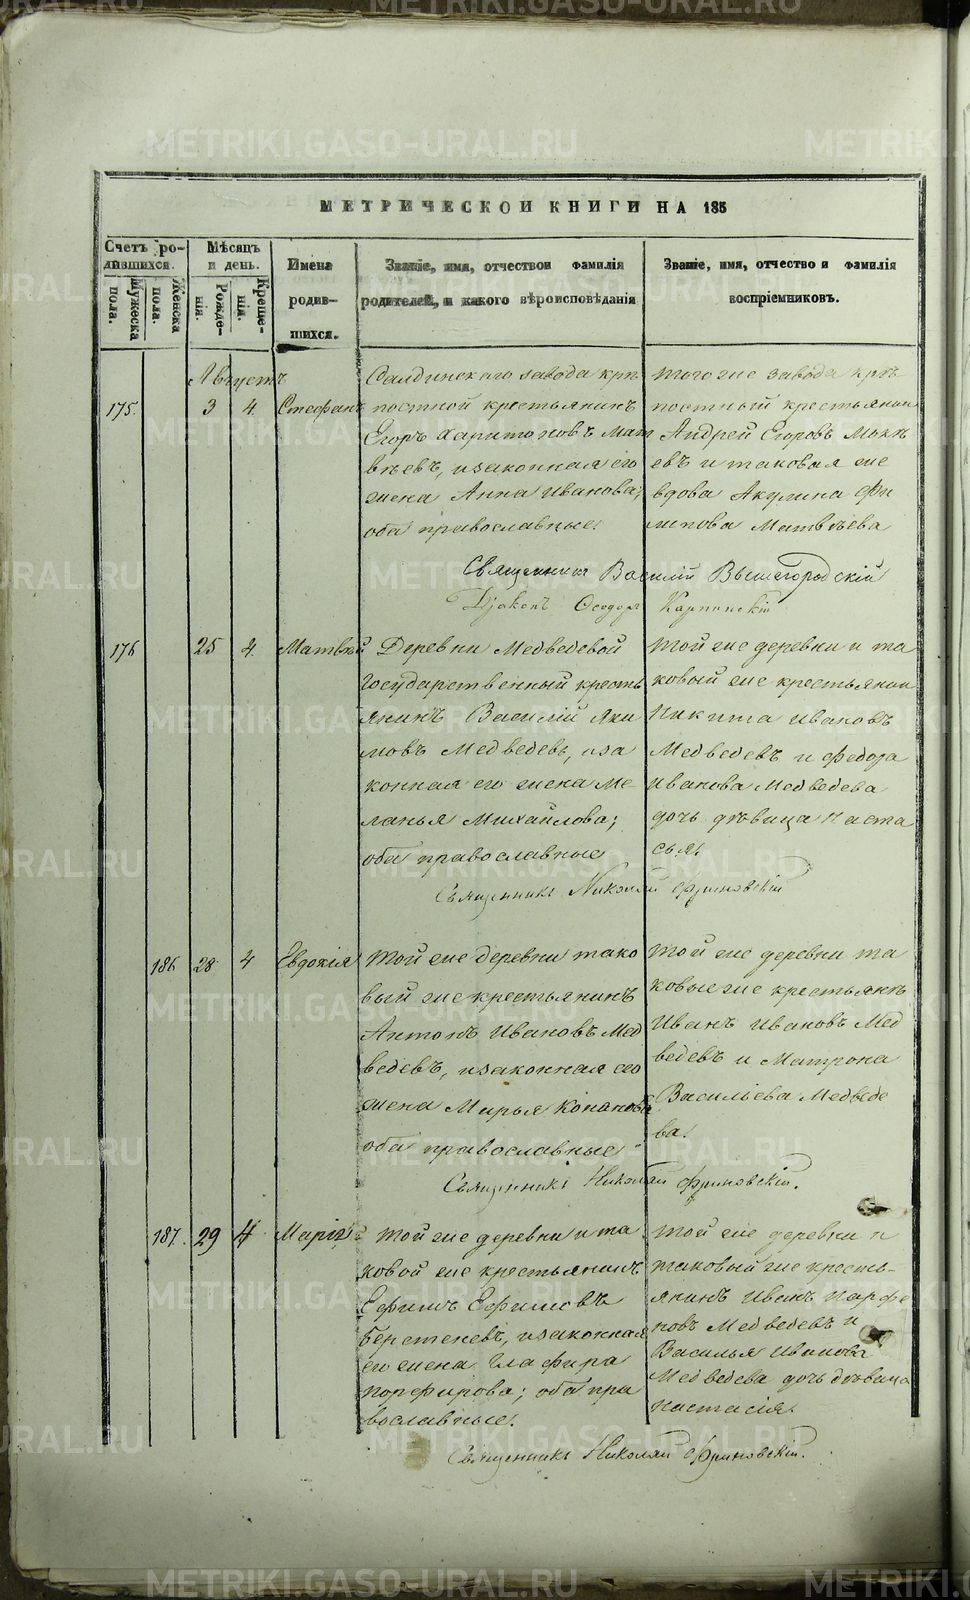 МЕТРИЧЕСКОЙ КНИГИ НА 185
Счетъ ро-
дившихся.
Мѣсяцъ
и день.
Имена
родив-
шихся.
Званіе, имя, отчество и фамилія
родителей, и какого вѣроисповѣданія
Званіе, имя, отчество и фамилія
воспріемниковъ.
Мужеска
пола.
Женска
пола.
Рожде-
нія.
Креще-
нія.
Августъ
175. 3 4. Стефанъ
Салдинскаго завода крѣ
постной крестьянинъ
Егоръ Харитоновъ Мат
вѣевъ, и законная его
жена Анна Иванова;
оба православные.
того же завода крѣ
постный крестьянин
Андрей Егоровъ Мокѣ
евъ и таковая же
вдова Акулина Фи
липова Матвѣева
Священникъ Василій Вышегородскій
Діаконъ Ѳеодоръ Карпинскій
176 25 4. Матвѣй
Деревни Медведевой
государственный кресть
янинъ Василій Яки
мовъ Медведевъ, и за
конная его жена Ме
ланья Михайлова;
оба православные
той же деревни и та
ковый же крестьянин
Никита Ивановъ
Медведевъ и Федора
Иванова Медведева
дочь дѣвица Наста
сья.
Священникъ Николай Фриновскій
186 28 4 Евдокія
Той же деревни тако
вый же крестьянинъ
Антонъ Ивановъ Мед
ведевъ, и законная его
жена Марья Конанова
оба православные
той же деревни та
ковые же крестьянѣ
Иванъ Ивановъ Мед
ведевъ и Матрона
Васильева Медведе
ва.
Священникъ Николай Фриновскій.
187. 29 4 Марія
Той же деревни и та
ковой же крестьянинъ
Ефимъ Ефимовъ
Берстеневъ, и законная
его жена Глафира
Порфирова; оба пра
вославные.
той же деревни и
таковый же кресть-
янинъ Иванъ Парфе
новъ Медведевъ и
Василья Иванова
Медведева дочь дѣвица
Настасія.
Священникъ Николай Фриновскій.
METRIKI.GASO-URAL.RU